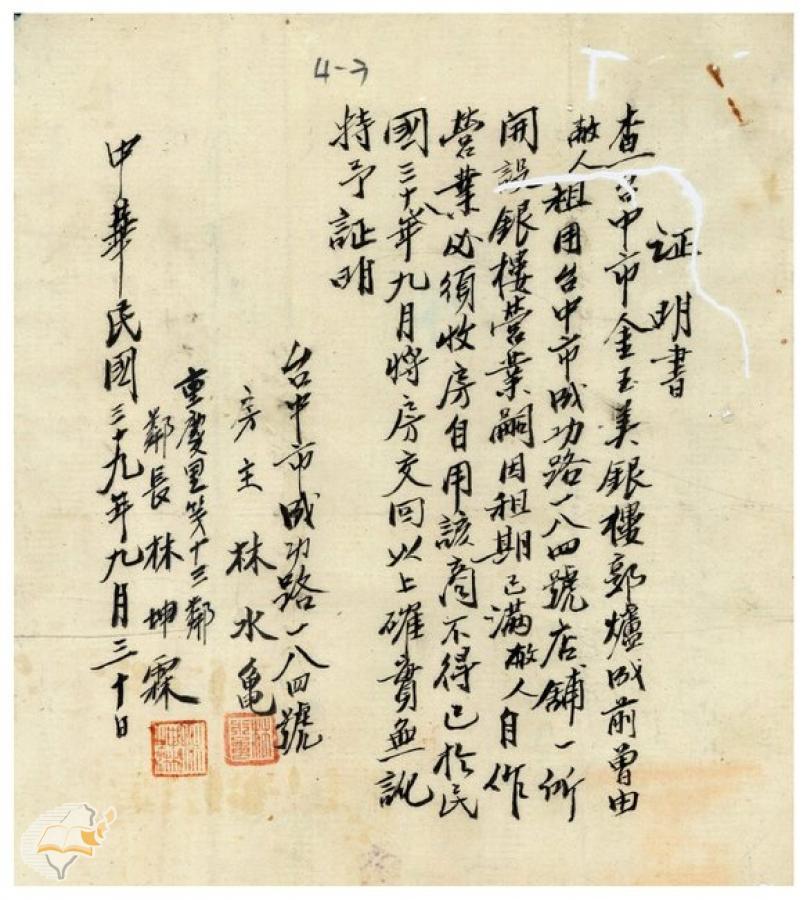 4-7
証明書
查台中市金玉美銀樓郭爐成前曾由
敝人租用台中市成功路一八四號店舖一所
開設銀樓營業嗣因租期已滿敝人自作
營業必須收房自用該商不得已於民
國三十八年九月將房交回以上確實無訛
特予証明
台中市成功路一八四號
房主 林水龜
重慶里第十三鄰
鄰長 林坤霖
中華民國三十九年九月三十日